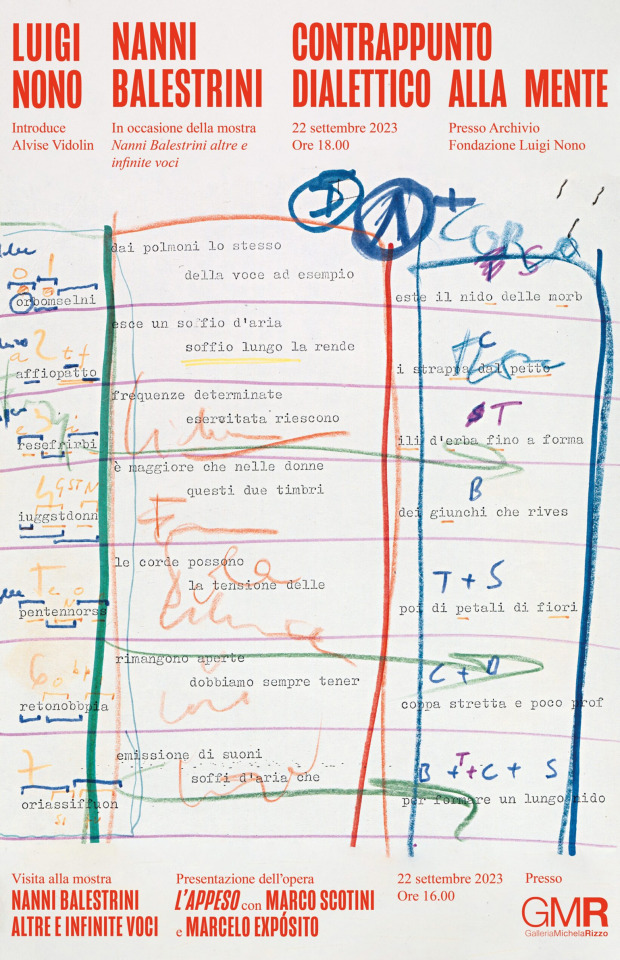 LUIGI NONO
Introduce
Alvise Vidolin
NANNI BALESTRINI
In occasione della mostra
Nanni Balestrini altre e
infinite voci
CONTRAPPUNTO
DIALETTICO ALLA MENTE
22 settembre 2023
Ore 18.00
Presso Archivio
Fondazione Luigi Nono
D A +
dai polmoni lo stesso
della voce ad esempio
orbomselni
este il nido delle morb
esce un soffio d'aria
soffio lungo la rende
affiopatto
i strappa dal petto
frequenze determinate
esercitata riescono
resefrirbi
T
ili d'erba fino a forma
è maggiore che nelle donne
questi due timbri
iuggstdonn
B
dei giunchi che rives
le corde possono
la tensione delle
pentennorss
T + S
poi di petali di fiori
rimangono aperte
dobbiamo sempre tener
retonobbpia
C + D
coppa stretta e poco prof
emissione di suoni
soffi d'aria che
oriassiffuon
B + T + C + S
per formare un lungo nido
Visita alla mostra
NANNI BALESTRINI
ALTRE E INFINITE VOCI
Presentazione dell'opera
L'APPESO con MARCO SCOTINI
e MARCELO EXPÓSITO
22 settembre 2023
Ore 16.00
Presso
GMR
GalleriaMichelaRizzo